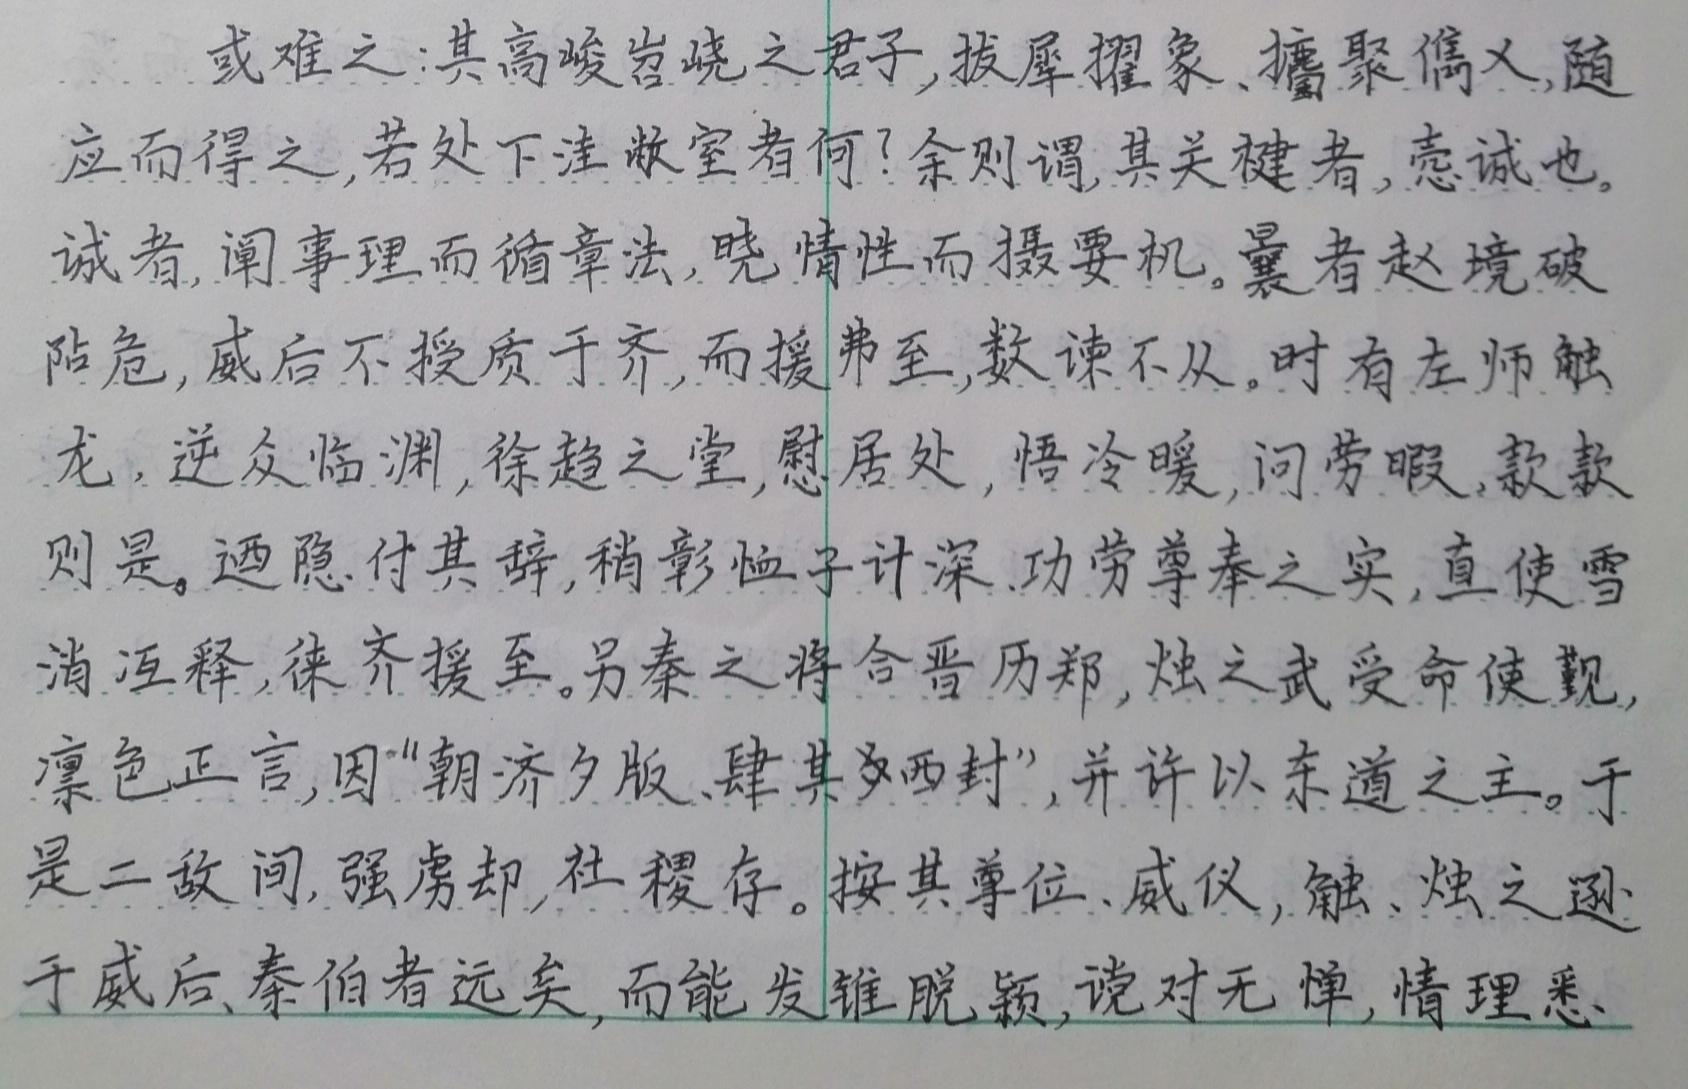 或难之:其高峻岧峣之君子,拔犀擢象、攟聚儁乂,随
应而得之,若处下洼敝室者何?余则谓,其关楗者,悫诚也。
诚者,阐事理而循章法,晓情性而摄要机。曩者赵境破
阽危,威后不授质于齐,而援弗至,数谏不从。时有左师触
龙,逆众临渊,徐趋之堂,慰居处,悟冷暖,问劳暇,款款
则是。迺隐付其辞,稍彰恤子计深、功劳尊奉之实,直使雪
消冱释,徕齐援至。另秦之将合晋历郑,烛之武受命使觐,
凛色正言,因“朝济夕版、肆其西封”,并许以东道之主。于
是二敌间,强虏却,社稷存。按其尊位、威仪,触、烛之逊
于威后、秦伯者远矣,而能发锥脱颖,谠对无惮,情理悉、